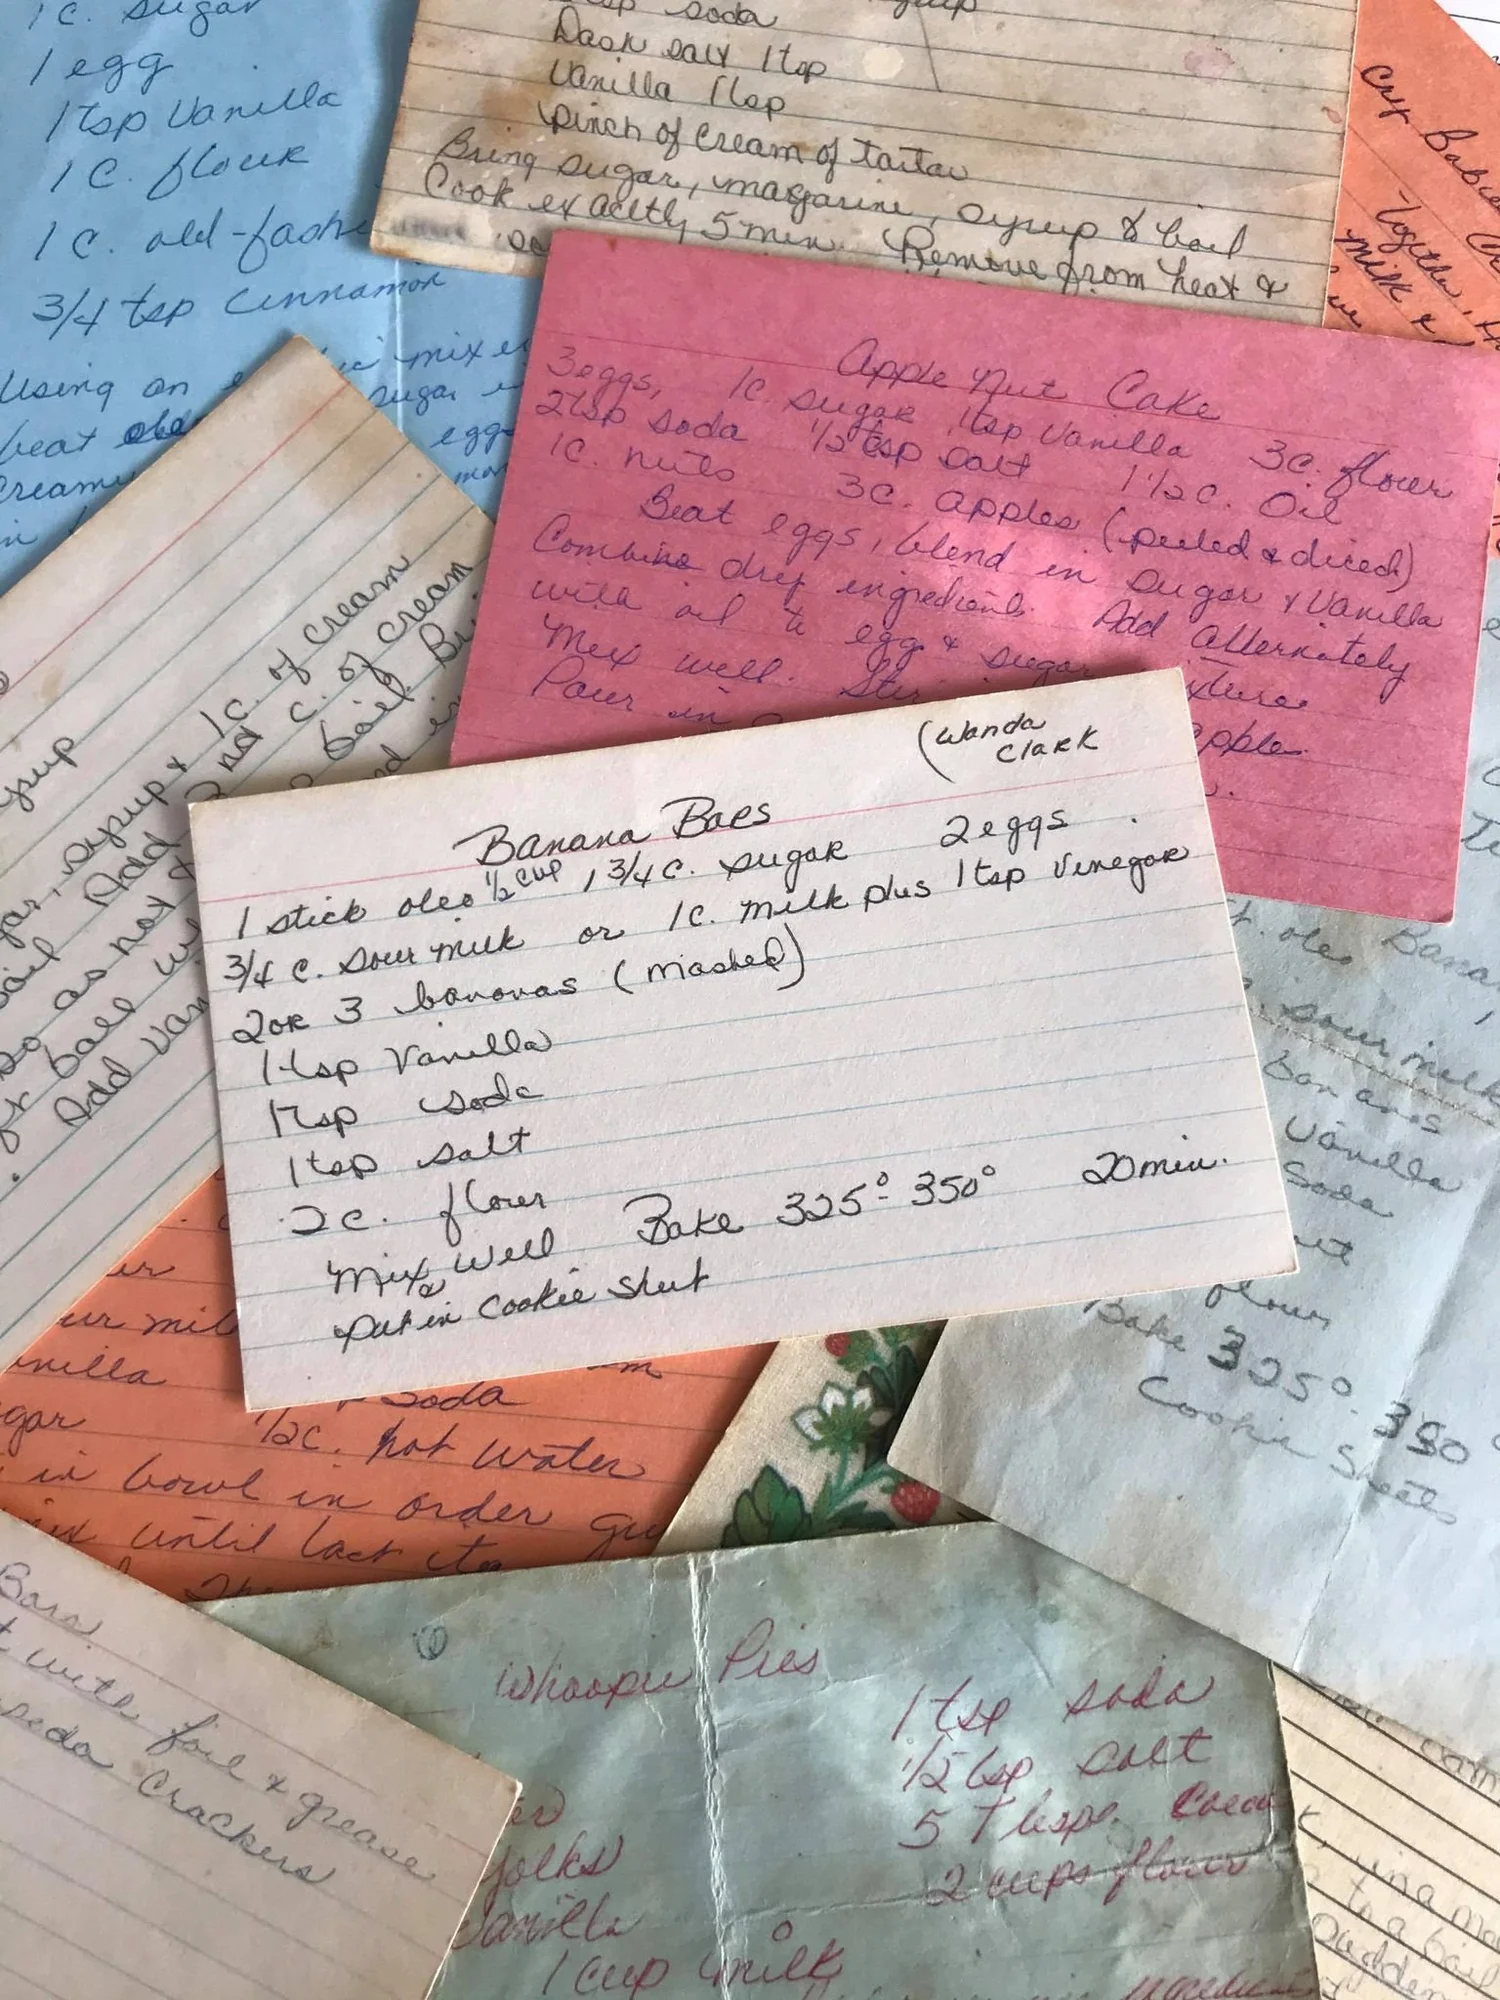 1 c. sugar
1 egg
1 tsp Vanilla
1 c. flour
1 c. old-fashi
3/4 tsp Cinnamon
Using an mixe
beat sugar
creamy eggs
in
tsp soda
Dash salt 1 tsp
Vanilla 1 tsp
pinch of Cream of tartar
Bring sugar, magarine, syrup & boil
Cook exactly 5 min. Remove from heat &
Cry Babies
together,
milk &
Apple Nut Cake
3 eggs, 1c sugar 1tsp Vanilla 3c. flour
2tsp soda 1/2 tsp salt 1 1/2 c. Oil
1c. nuts 3c. apples (peeled & diced)
Beat eggs, blend in sugar & Vanilla
Combine dry ingredients. Add alternately
with oil to egg & sugar xture
Mix well. Stir apple
Pour in
yrup
gar, syrup & 1c. of cream
boil. Add 2nd c. of cream
so as not boil
ball
Add Van
(Wanda
Clark
Banana Bars
1 stick oleo 1/2 cup, 1 3/4 c. sugar 2 eggs
3/4 c. sour milk or 1c. milk plus 1 tsp Vinegar
2 or 3 bananas (mashed)
1 tsp Vanilla
1 tsp soda
1 tsp salt
2 c. flour
Mix Well Bake 325°-350° 20 min.
& put in Cookie Sheet
t. oleo Banan
sour milk
bananas
Vanilla
Soda
flour
Bake 325°-350
Cookie Sheets
ur mil
anilla Soda
gar 1/2 c. hot water
in bowl in order
mix until last
Bars
t with foil & grease
soda Crackers
Whoopie Pies
1 tsp soda
1/2 tsp salt
5 Tbsps. Cocoa
yolks 2 cups flour
Vanilla
1 cup milk
to a boil